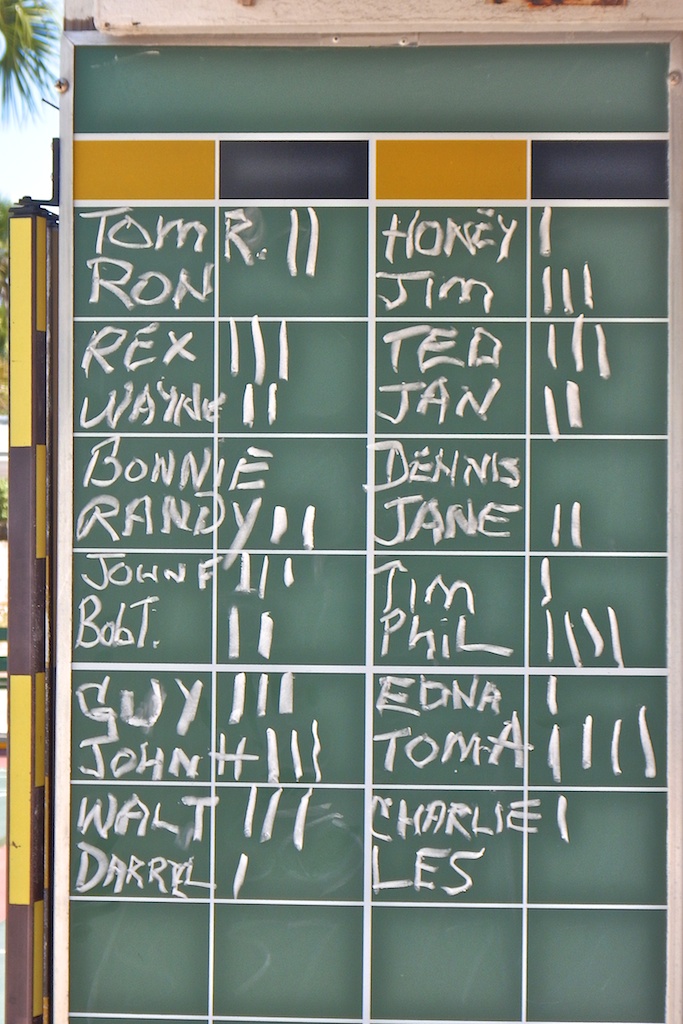 TOM R. II HONEY I
RON JIM III
REX III TED III
WAYNE II JAN II
BONNIE DENNIS
RANDY II JANE II
JOHN F III TIM I
BOB T. II PHIL IIII
GUY III EDNA I
JOHN H III TOM A IIII
WALT III CHARLIE I
DARRYL I LES